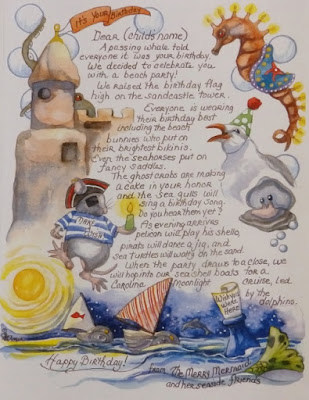 It's Your Birthday
Dear (child's name)
A passing whale told
everyone it was your birthday.
We decided to celebrate you
with a beach party!
We raised the birthday flag
high on the sandcastle tower.
Everyone is wearing
their birthday best
including the beach
bunnies who put on
their brightest bikinis.
Even the seahorses put on
fancy saddles.
The ghost crabs are making
a cake in your honor
and the sea gulls will
sing a birthday song.
Do you hear them yet?
As evening arrives
pelicans will play his shells,
pirates will dance a jig, and
Sea Turtles will waltz on the sand.
When the party draws to a close, we
will hop into our seashell boats for a
Carolina Moonlight cruise, led
by the
dolphins.
Wish you
Were
Here
Happy Birthday!
from The Merry Mermaid
and her seaside friends